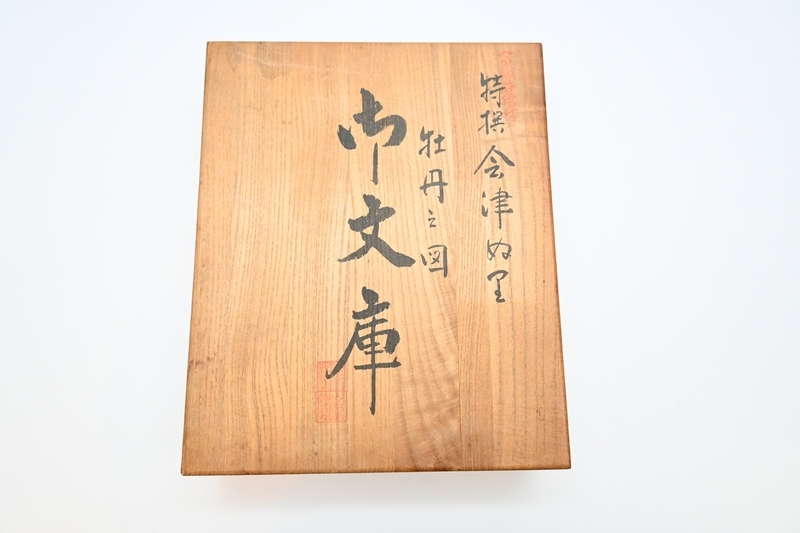 特撰会津ぬり
牡丹之図
御文庫